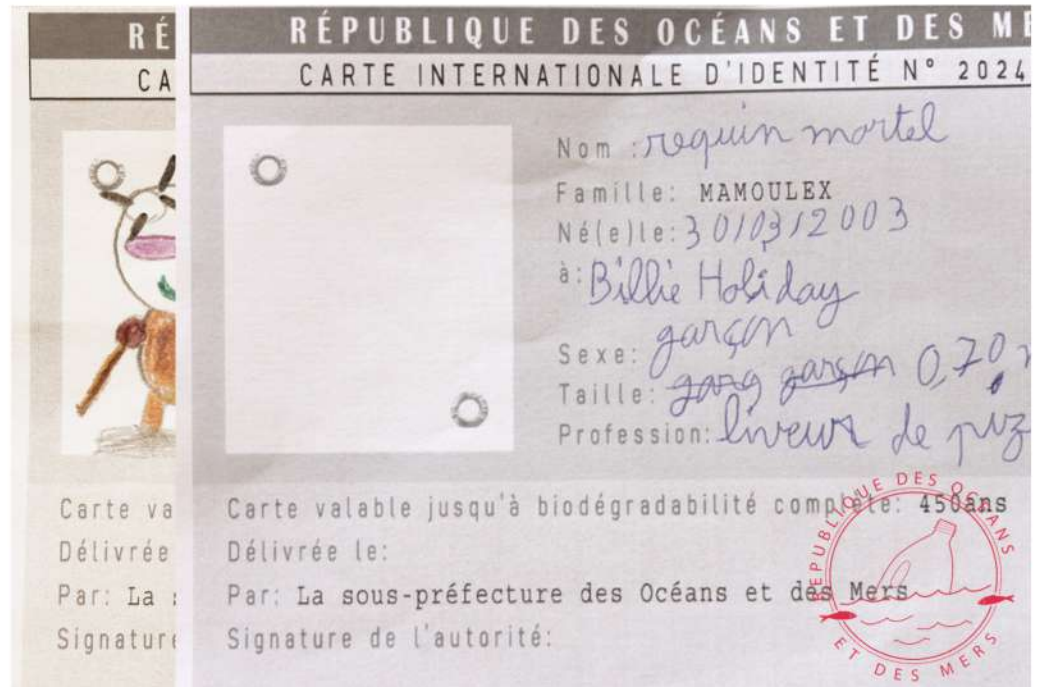 RÉ
CA
Carte va
Délivrée
Par: La s
Signature
RÉPUBLIQUE DES OCÉANS ET DES ME
CARTE INTERNATIONALE D'IDENTITÉ N° 2024
Nom : requin mortel
Famille: MAMOULEX
Né(e)le: 30/03/2003
à: Billie Holiday
Sexe: garçon
Taille: garç garçon 0,70 m
Profession: liveur de piz
Carte valable jusqu'à biodégradabilité complète: 450ans
Délivrée le:
Par: La sous-préfecture des Océans et des Mers
Signature de l'autorité:
RÉPUBLIQUE DES OCÉANS
ET DES MERS